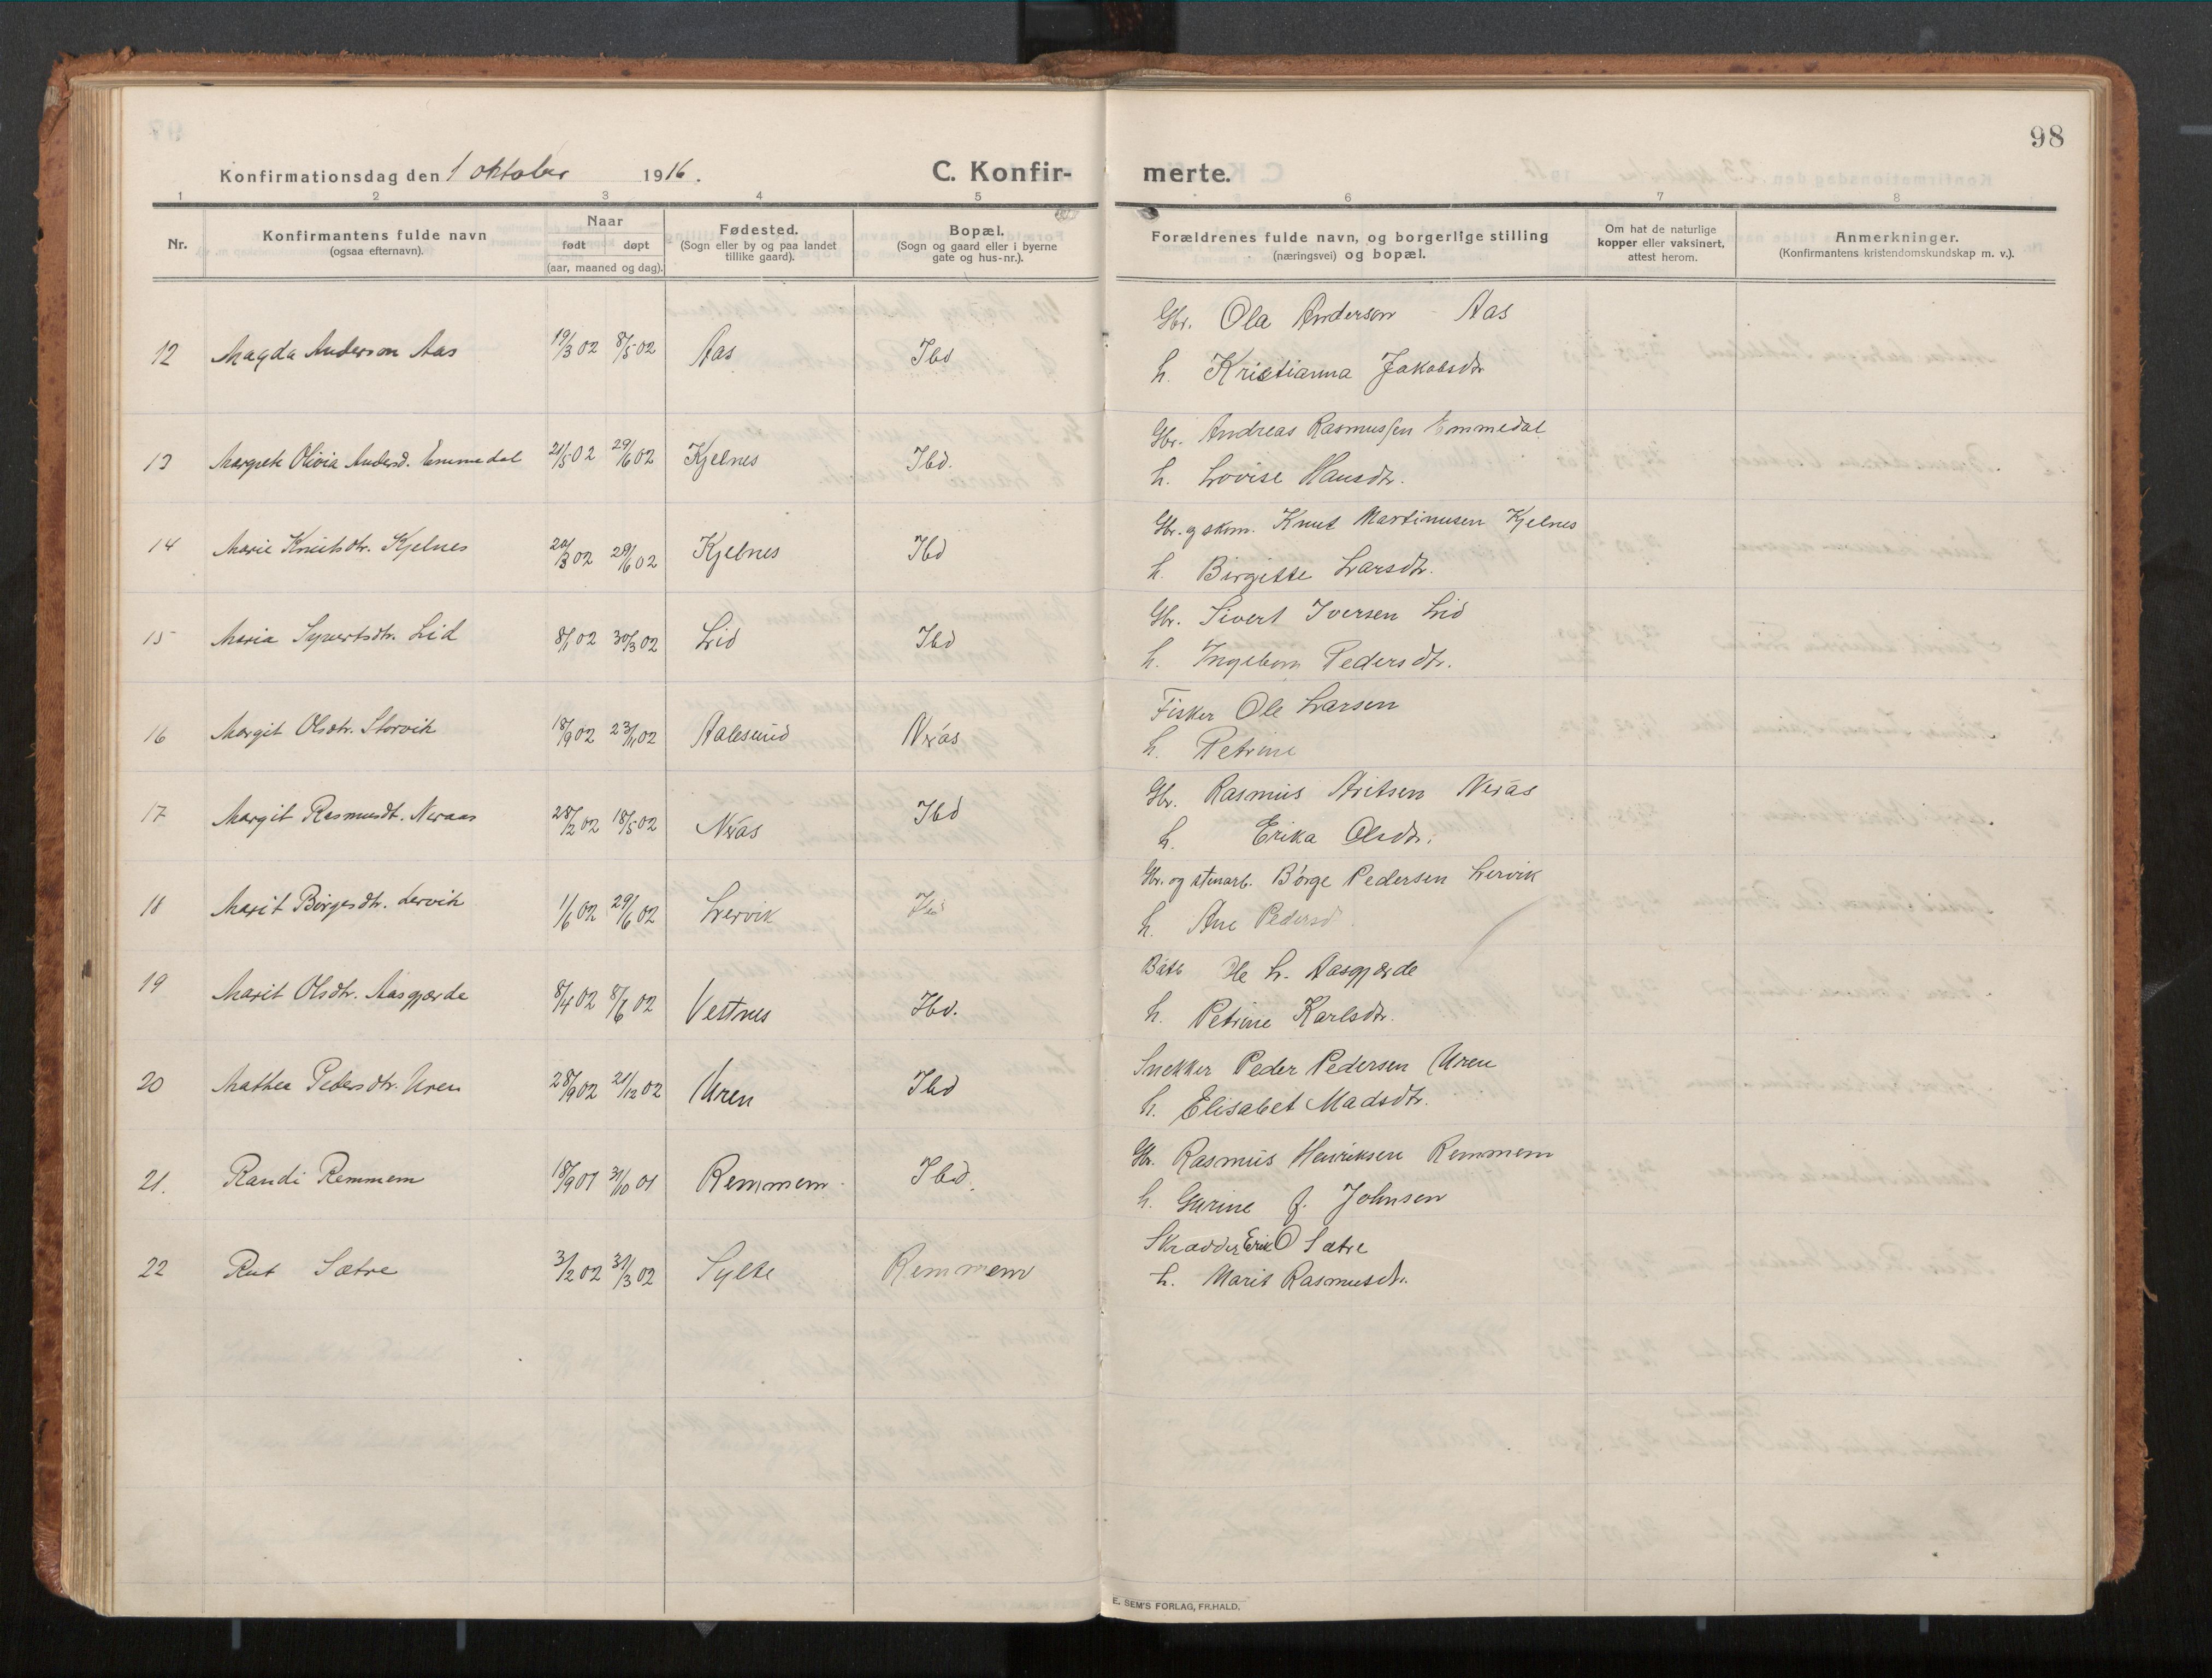 98
Konfirmationsdag den 1 oktober 1916.
C. Konfirmerte.
1 2 3 4 5 6 7 8
Nr.
Konfirmantens fulde navn
(ogsaa efternavn).
Naar
født døpt
(aar, maaned og dag).
Fødested.
(Sogn eller by og paa landet
tillike gaard).
Bopæl.
(Sogn og gaard eller i byerne
gate og hus-nr.).
Forældrenes fulde navn, og borgerlige stilling
(næringsvei) og bopæl.
Om hat de naturlige
kopper eller vaksinert,
attest herom.
Anmerkninger.
(Konfirmantens kristendomskundskap m. v.).
12 Magda Anderson Aas 19/3 02 8/5 02 Aas Ibd
Gbr. Ola Anderson Aas
h. Kristianna Jakobsdtr
13 Margrete Olivia Andersd. Emmedal 21/5 02 29/6 02 Kjelnes Ibd.
Gbr. Andreas Rasmussen Emmedal
h. Lovise Hansdtr.
14 Marie Knutsdtr. Kjelnes 20/3 02 29/6 02 Kjelnes Ibd
Gbr. og skom. Knut Martinusen Kjelnes
h. Birgitte Larsdtr.
15 Maria Syvertsdtr. Lid 8/1 02 30/3 02 Lid Ibd
Gbr. Sivert Iversen Lid
h. Ingeborg Pedersdtr.
16 Margit Olsdtr. Storvik 18/9 02 23/11 02 Aalesund Nerås
Fisker Ole Larsen
h. Petrine
17 Margit Rasmusdt. Neraas 28/2 02 18/5 02 Nerås Ibd
Gbr. Rasmus Aritsen Nerås
h. Erika Olsdtr.
18 Marit Børgesdtr. Lervik 1/6 02 29/6 02 Lervik Ibd
Gbr. og stenarb. Børge Pedersen Lervik
h. Ane Pedersd
19 Marit Olsdtr. Aasgjærde 8/4 02 8/6 02 Vestnes Ibd.
Båtb Ole L. Aasgjærde
h. Petrine Karlsdtr.
20 Mathea Pedersdtr. Uren 28/9 02 21/12 02 Uren Ibd
Snekker Peder Pedersen Uren
h. Elisabet Madsdtr.
21. Randi Remmem 18/9 01 31/10 01 Remmem Ibd.
Gbr. Rasmus Henriksen Remmem
h. Gurine f. Johnsen
22 Rut Sætre 3/2 02 31/3 02 Sylte Remmem
Skrædder Erik O Sætre
h. Marit Rasmusdtr.
E. SEM'S FORLAG, FR.HALD.